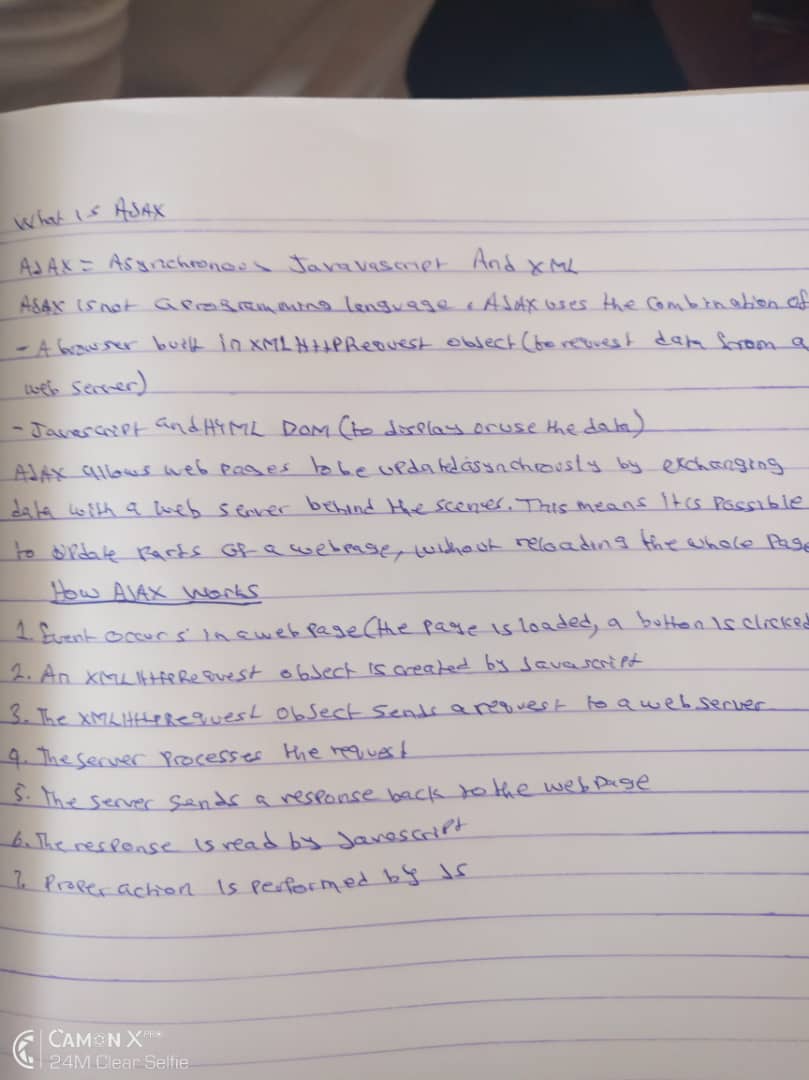 What is AJAX
AJAX = Asynchronous Javavascript And XML
AJAX is not a programming language, AJAX uses the combination of
- A browser built in XMLHttpRequest object (to request data from a
web server)
- Javascript and HTML DOM (to display or use the data)
AJAX allows web pages to be updated asynchrously by exchanging
data with a web server behind the scenes. This means it is possible
to update parts of a webpage, without reloading the whole page
How AJAX Works
1. Event occurs in a web page (the page is loaded, a button is clicked
2. An XMLHttpRequest object is created by Javascript
3. The XMLHttpRequest object sends a request to a web server
4. The server processes the request
5. The server sends a response back to the web page
6. The response is read by Javascript
7. Proper action is performed by JS
CAMON X PRO
24M Clear Selfie